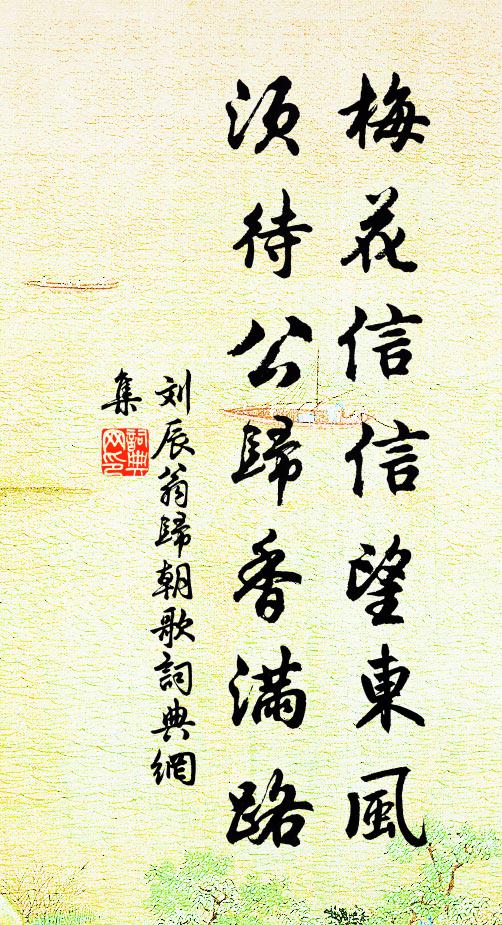 梅花信信望東風
須待公歸香滿路
刘辰翁歸朝歌詞典網
集
詞典